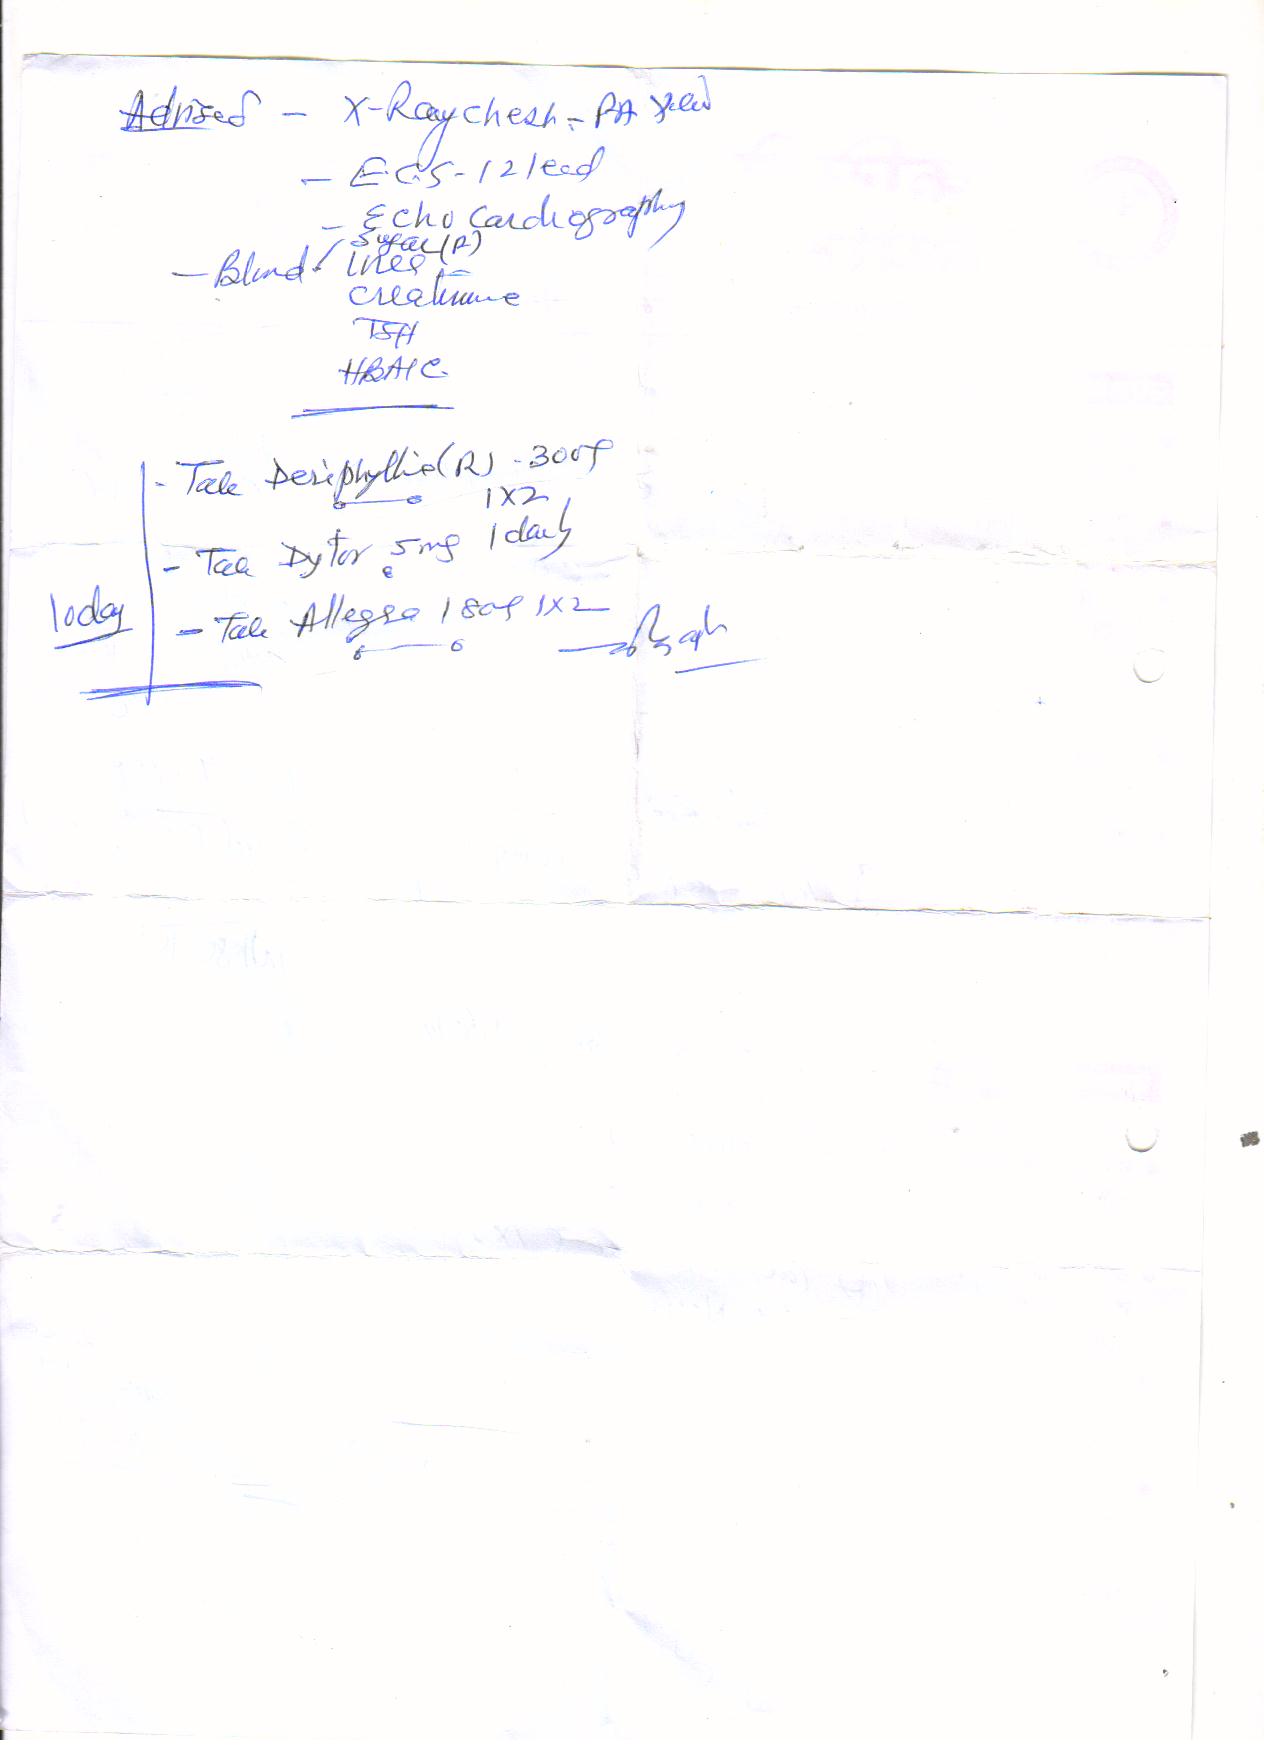 Advised - X-Ray chest - PA view
- ECG - 12 lead
- Echo Cardiography
- Blood / Sugar (R)
Urea
Creatinine
TSH
HBA1C
- Tab Deriphyllin (R) - 300
1 X 2
- Tab Dytor 5mg 1 daily
10 day
- Tab Allegra 180 1 X 2